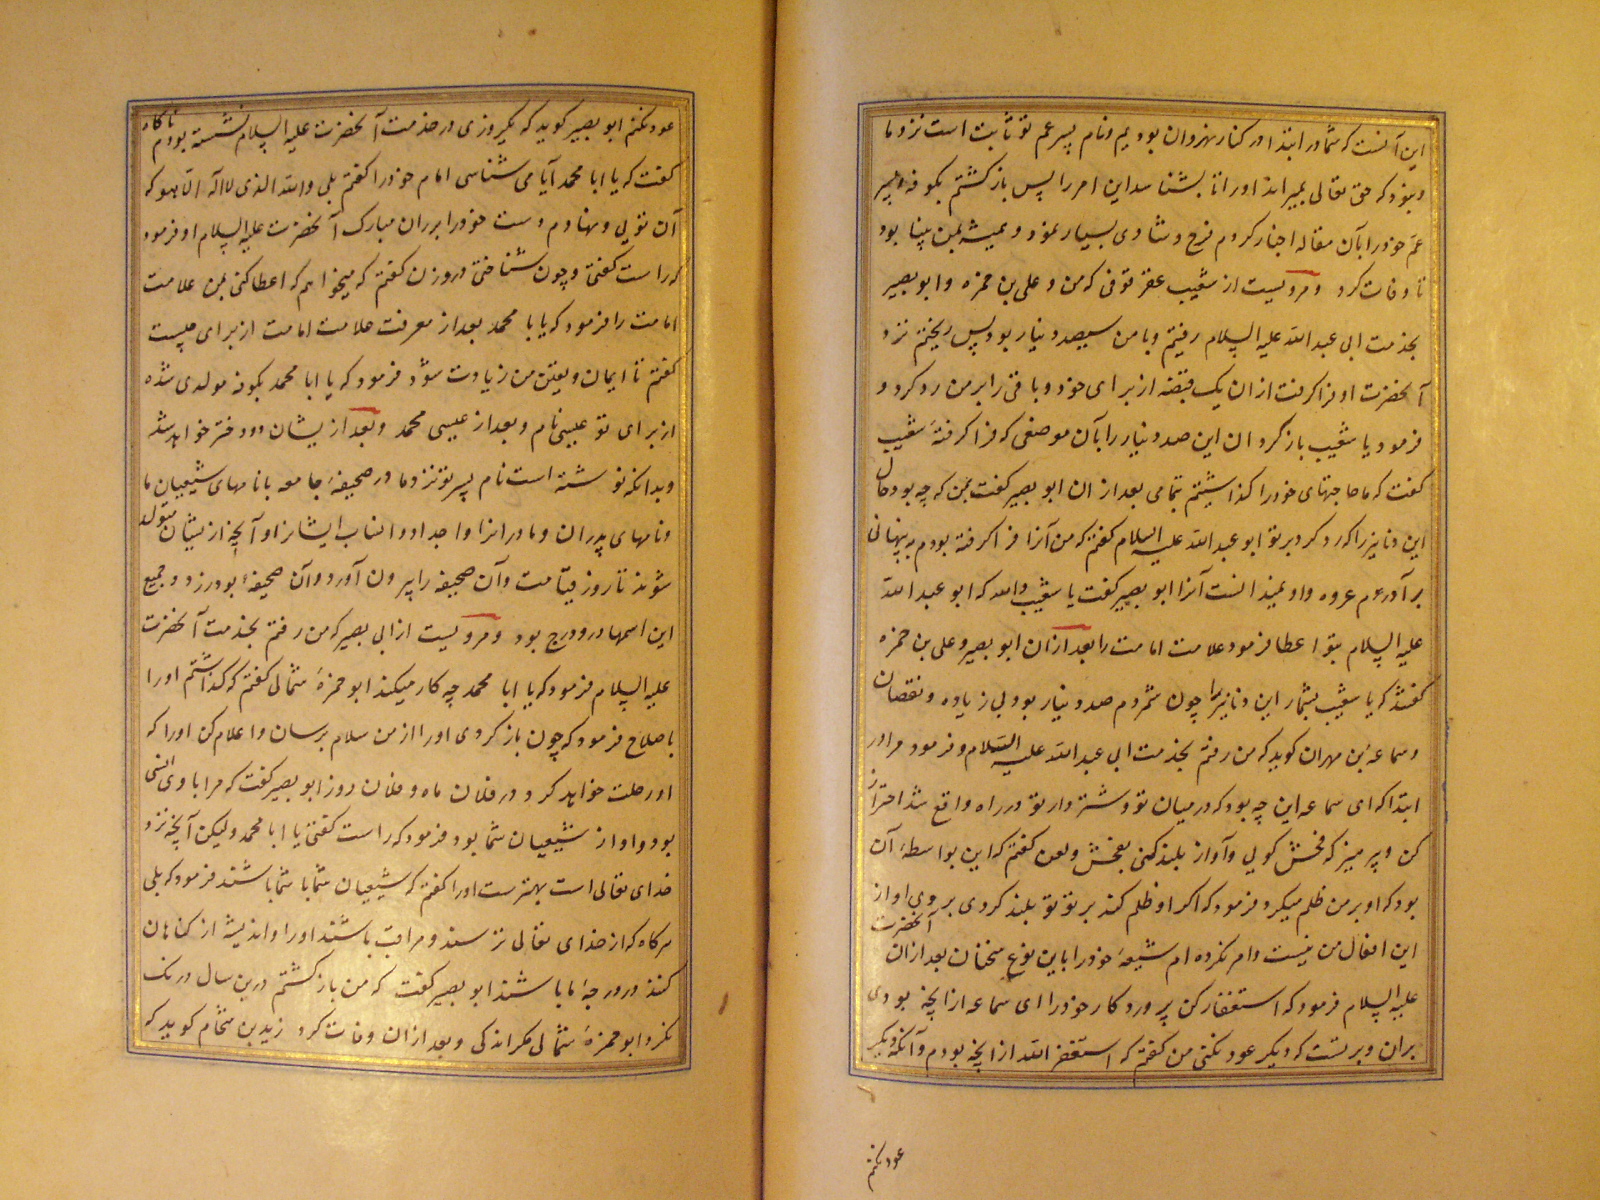 این آنست که شما در ابتدا در کنار نهروان بودیم و نام پسر عم تو ثابت است نزد ما
و نبود که حق تعالی بمیراند او را تا بشناسد این امر را پس بازگشتم بکوفه و پسر
عم خود را بآن مقاله اخبار کردم فرح و شادی بسیار نمود و همیشه بمن بینا بود
تا وفات کرد و مرویست از شعیب عقرقوفی که من و علی بن حمزه و ابو بصیر
بخدمت ابی عبد الله علیه السلام رفتیم و با من سیصد دینار بود پس ریختم نزد
آنحضرت او فرا گرفت ازان یک قبضه از برای خود و باقی را بر من رد کرد و
فرمود یا شعیب باز گردان این صد دینار را بآن موضعی که فرا گرفتهٔ شعیب
گفت که ما حاجتهای خود را گذاشتیم تمامی بعد ازان ابو بصیر گفت بمن که چه بود حال
این دنانیر را که رد کرد بر تو ابو عبد الله علیه السلام گفتم که من آنرا فرا گرفته بودم به پنهانی
بر آوردم عروه و او نمیدانست آنرا ابو بصیر گفت یا شعیب والله که ابو عبد الله
علیه السلام بتو اعطا فرمود علامت امامت را بعد ازان ابو بصیر و علی بن حمزه
گفتند که یا شعیب بشمار این دنانیر را چون شمردم صد دینار بود بی زیاده و نقصان
و سماعه بن مهران گوید که من رفتم بخدمت ابی عبد الله علیه السلام و فرمود مرا در
ابتدا که ای سماعه این چه بود که در میان تو و شتردار تو در راه واقع شد احتراز
کن و پرهیز که فحش گویی و آواز بلند کنی بفحش و لعن گفتم که این بواسطهٔ آن
بود که او بر من ظلم میکرد فرمود که اگر او ظلم کند بر تو تو بلند کردی بر وی آواز
این افعال من نیست و امر نکرده ام شیعهٔ خود را باین نوع سخنان بعد ازان آنحضرت
علیه السلام فرمود که استغفار کن پروردکار خود را ای سماعه از انچه بودی
بران و بر تست که دیگر عود نکنی من گفتم که استغفر الله از انچه بودم و آنکه دیگر
عود نکنم
عود نکنم ابو بصیر گوید که یکروزی در خدمت آنحضرت علیه السلام نشسته بودم ناگاه
گفت که یا ابا محمد آیا می شناسی امام خود را گفتم بلی والله الذی لا اله الا هو که
آن تویی و نهادم دست خود را بر ران مبارک آنحضرت علیه السلام او فرمود
که راست گفتی و چون شناختی گفتم که میخواهم که اعطا کنی بمن علامت
امامت را فرمود که یا ابا محمد بعد از معرفت علامت امامت از برای چیست
گفتم تا ایمان و یقین من زیادت شود فرمود که یا ابا محمد بکوفه مولدی شده
از برای تو عیسی نام و بعد از عیسی محمد و بعد از یشان دو دختر خواهد شد
و بدانکه نوشته است نام پسر تو نزد ما در صحیفهٔ جامعه با نامهای شیعیان ما
و نامهای پدران و مادرانرا و اجداد و انساب ایشانرا و آنچه از یشان متولد
شوند تا روز قیامت و آن صحیفه را بیرون آورد و آن صحیفهٔ بود زرد و جمیع
این اسمها در و درج بود و مرویست از ابی بصیر که من رفتم بخدمت آنحضرت
علیه السلام فرمود که یا ابا محمد چه کار میکند ابو حمزهٔ ثمالی گفتم که گذاشتم او را
باصلاح فرمود که چون باز کردی او را از من سلام برسان و اعلام کن او را که
او رحلت خواهد کرد در فلان ماه و فلان روز ابو بصیر گفت که مرا با وی انسی
بود و او از شیعیان شما بود فرمود که راست گفتی یا ابا محمد و لیکن آنچه نزد
خدای تعالی است بهترست او را گفتم که شیعیان شما با شما باشند فرمود که بلی
هرکاه که از خدای تعالی ترسند و مراقب باشند او را و اندیشه از کناهان
کنند در درجهٔ ما باشند ابو بصیر گفت که من بازگشتم درین سال درنک
نکرد ابو حمزهٔ ثمالی مگر اندکی و بعد ازان وفات کرد زید بن شحام گوید که